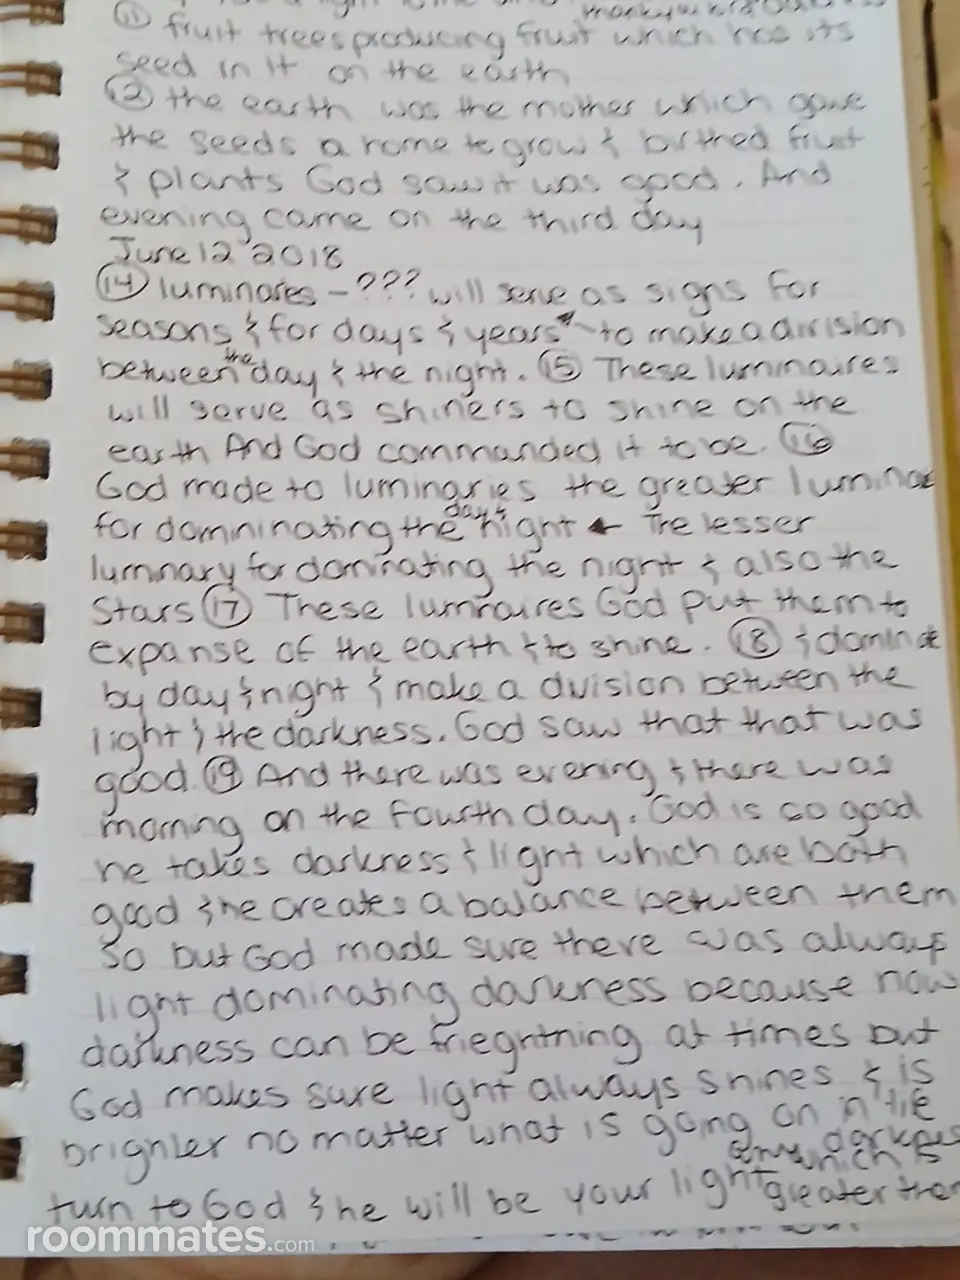 ⑪ fruit trees producing fruit which has its
seed in it on the earth
⑫ the earth was the mother which gave
the seeds a home to grow & birthed fruit
& plants God saw it was good. And
evening came on the third day
June 12 2018
⑭ luminares - ??? will serve as signs for
seasons & for days & years to make a division
between the day & the night. ⑮ These luminaires
will serve as shiners to shine on the
earth And God commanded it to be. ⑯
God made to luminaries the greater luminae
for domninating the day & night ← The lesser
lumnary for dominating the night & also the
Stars ⑰ These lumnaires God put them to
expanse of the earth & to shine. ⑱ & dominate
by day & night & make a dvision between the
light & the darkness. God saw that that was
good. ⑲ And there was evening & there was
morning on the fourth day. God is so good
he takes darkness & light which are both
good & he creates a balance between them
So but God made sure there was always
light dominating darkness because now
darkness can be frieghtning at times but
God makes sure light always shines & is
brighter no matter what is going on in the
darkness
turn to God & he will be your light which is
greater than
roommates.com